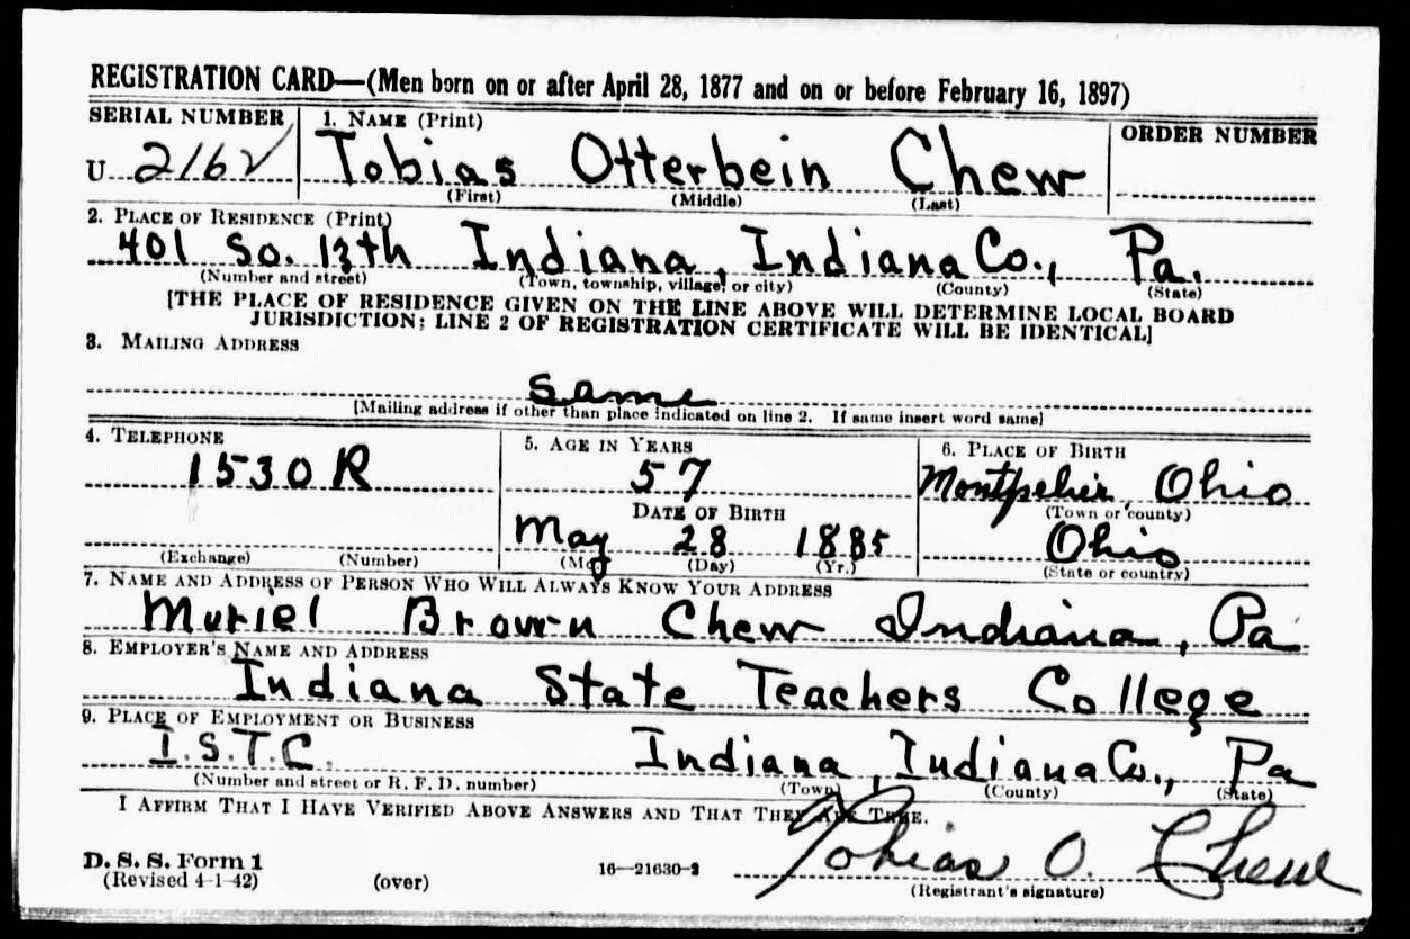 REGISTRATION CARD—(Men born on or after April 28, 1877 and on or before February 16, 1897)
SERIAL NUMBER 1. NAME (Print) ORDER NUMBER
U 2162 Tobias Otterbein Chew
(First) (Middle) (Last)
2. PLACE OF RESIDENCE (Print)
401 So. 13th Indiana, Indiana Co., Pa.
(Number and street) (Town, township, village, or city) (County) (State)
[THE PLACE OF RESIDENCE GIVEN ON THE LINE ABOVE WILL DETERMINE LOCAL BOARD
JURISDICTION; LINE 2 OF REGISTRATION CERTIFICATE WILL BE IDENTICAL]
3. MAILING ADDRESS
Same
[Mailing address if other than place indicated on line 2. If same insert word same]
4. TELEPHONE 5. AGE IN YEARS 6. PLACE OF BIRTH
1530 R 57 Montpelier, Ohio
DATE OF BIRTH (Town or county)
May 28 1885 Ohio
(Exchange) (Number) (Mo.) (Day) (Yr.) (State or country)
7. NAME AND ADDRESS OF PERSON WHO WILL ALWAYS KNOW YOUR ADDRESS
Muriel Brown Chew Indiana, Pa
8. EMPLOYER'S NAME AND ADDRESS
Indiana State Teachers College
9. PLACE OF EMPLOYMENT OR BUSINESS
I.S.T.C. Indiana, Indiana Co., Pa
(Number and street or R. F. D. number) (Town) (County) (State)
I AFFIRM THAT I HAVE VERIFIED ABOVE ANSWERS AND THAT THEY ARE TRUE.
Tobias O. Chew
D. S. S. Form 1
(Revised 4-1-42) (over) 16—21630-2 (Registrant's signature)